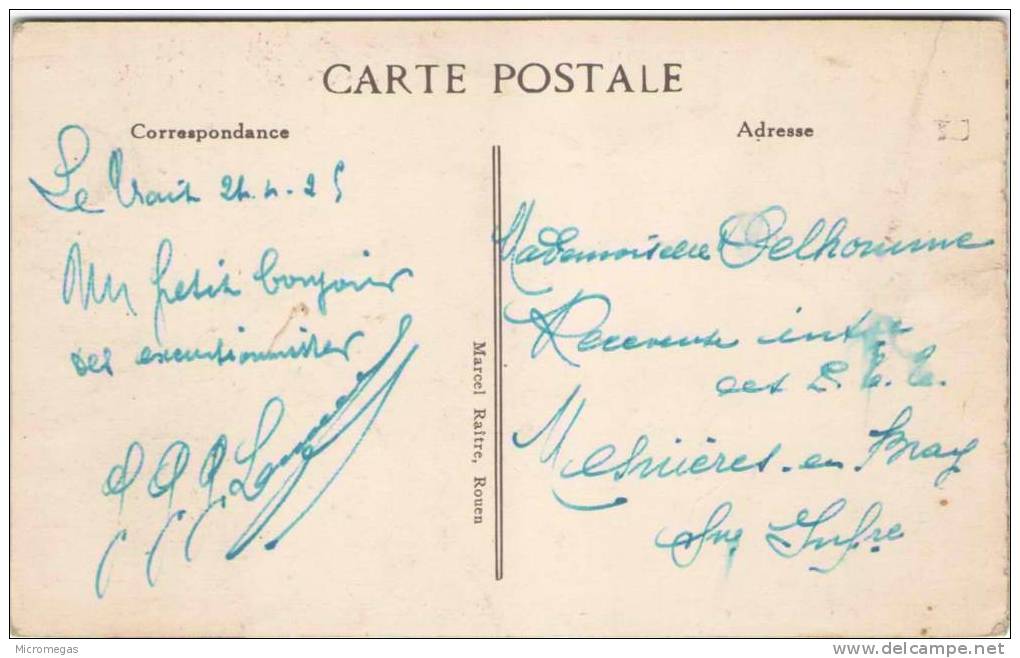 CARTE POSTALE
Correspondance
Adresse
Le Trait 24.4.25
Un petit bonjour
des excursionnistes
Mademoiselle Delhomme
Receveuse intre
des P.T.T.
Mesnières-en Bray
Sne Infre
Marcel Raître, Rouen
Micromegas
delcampe.net